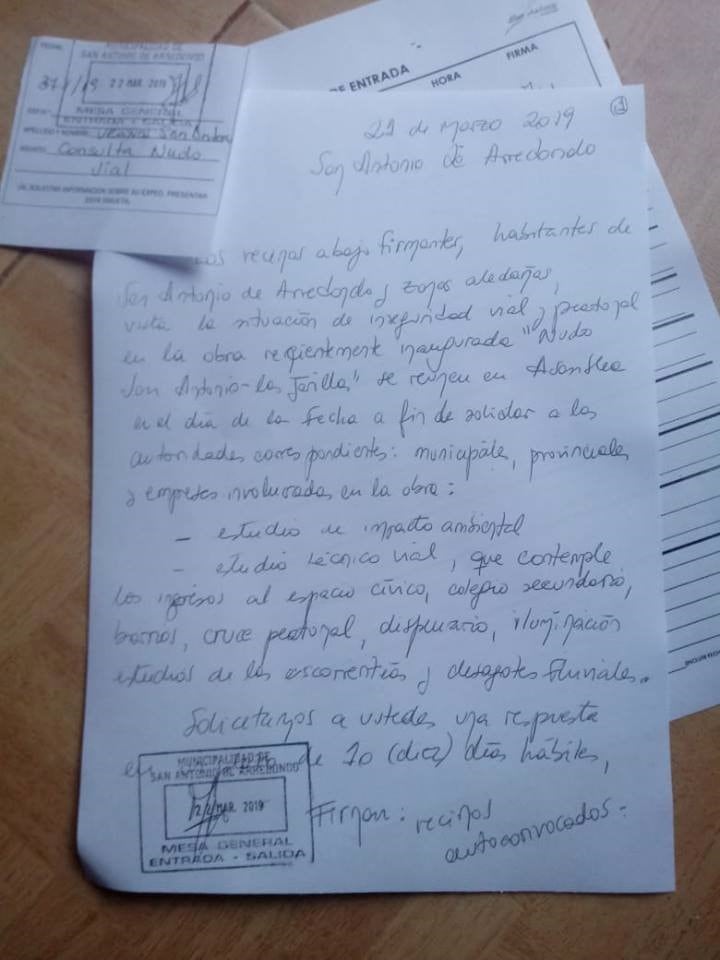 FECHA:
MUNICIPALIDAD DE
SAN ANTONIO DE ARREDONDO
22 MAR. 2019
MESA GENERAL
ENTRADA - SALIDA
APELLIDO Y NOMBRE: Vecinos San Antonio
ASUNTO: Consulta Nudo
Vial
AL SOLICITAR INFORMACION SOBRE SU EXPED. PRESENTAR
ESTA TARJETA
DE ENTRADA
HORA
FIRMA
1
21 de Marzo 2019
San Antonio de Arredondo
Los vecinos abajo firmantes, habitantes de
San Antonio de Arredondo y zonas aledañas,
vista la situación de inseguridad vial y peatonal
en la obra recientemente inaugurada "Nudo
San Antonio-Las Jarillas" se reunen en Asamblea
en el día de la fecha a fin de solicitar a las
autoridades correspondientes: municipales, provinciales
y empresas involucradas en la obra:
- estudio de impacto ambiental
- estudio técnico vial, que contemple
los ingresos al espacio cívico, colegio secundario,
barrios, cruce peatonal, dispensario, iluminación
estudios de las escorrentías y desagotes fluviales.
Solicitamos a ustedes una respuesta
en de 10 (diez) días hábiles,
Firman: vecinos
autoconvocados.
MUNICIPALIDAD DE
SAN ANTONIO DE ARREDONDO
22 MAR. 2019
MESA GENERAL
ENTRADA - SALIDA